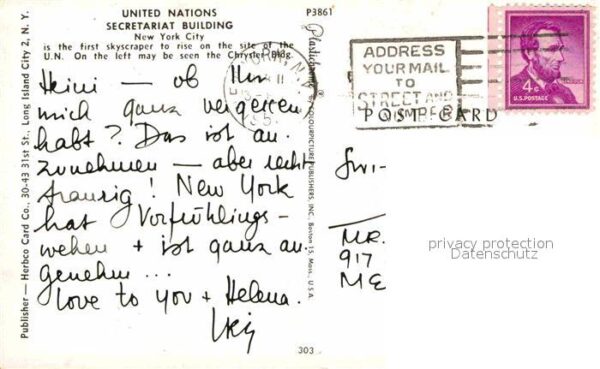 UNITED NATIONS
SECRETARIAT BUILDING
New York City
is the first skyscraper to rise on the site of the
U.N. On the left may be seen the Chrysler Bldg.
P3861
Heini — ob Ihr
mich ganz vergessen
habt? Das ist an-
zunehmen — aber recht
traurig! New York
hat Vorfrühlings-
wehen + ist ganz an-
genehm ...
Love to you + Helena.
303
Publisher — Herbco Card Co., 30-43 31st St., Long Island City 2, N. Y.
Plastichrome ® by COLOURPICTURE PUBLISHERS, INC., Boston 15, Mass., U.S.A.
ADDRESS
YOUR MAIL
TO
STREET AND
NUMBER
POST CARD
4¢
U.S. POSTAGE
MR.
917
ME
privacy protection
Datenschutz